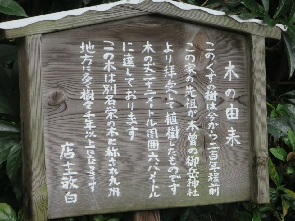 木の由来
このくすの樹は今から二百年程前
この家の先祖が木曽の御岳神社
より拝受して植樹したものです
木の丈二十メートル周囲六、八メートル
に達しております
この木は別名
地方
樹
千年以上
店主敬白